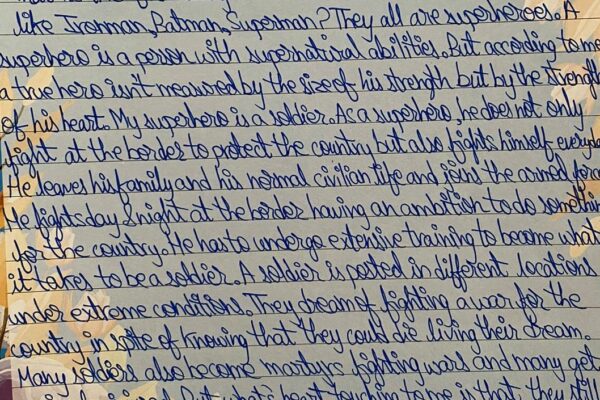 like Ironman, Batman, Superman? They all are superheroes. A
superhero is a person with supernatural abilities. But according to me
a true hero isn't measured by the size of his strength but by the strength
of his heart. My superhero is a soldier. As a superhero, he does not only
fight at the border to protect the country but also fights himself everyday
He leaves his family and his normal civilian life and joins the armed force
He fights day & night at the border having an ambition to do somethin
for the country. He has to undergo extensive training to become what
it takes to be a soldier. A soldier is posted in different locations
under extreme conditions. They dream of fighting a war for the
country in spite of knowing that they could die living their dream.
Many soldiers also become martyrs fighting wars and many get
But what's heart touching to me is that they still